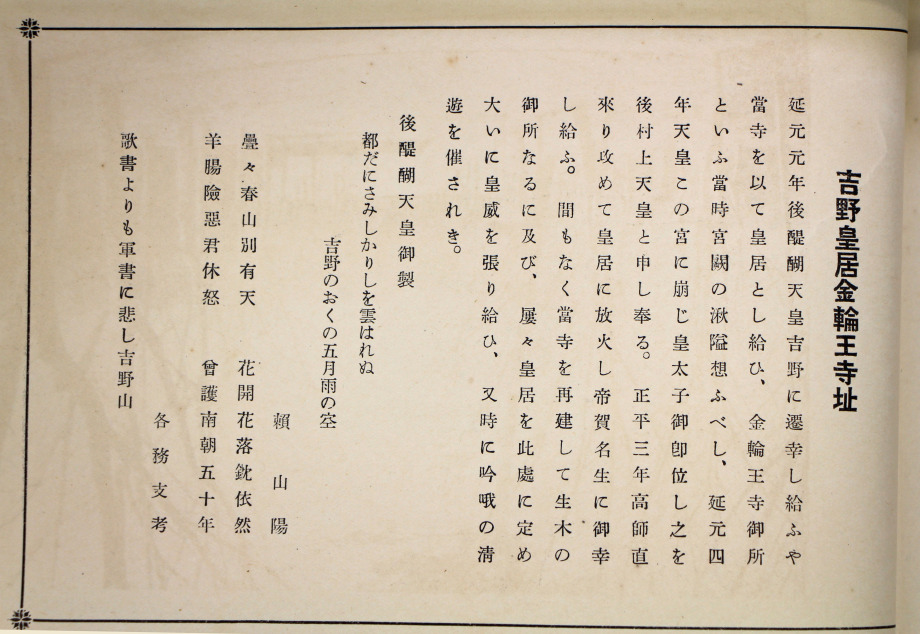 吉野皇居金輪王寺址
延元元年後醍醐天皇吉野に遷幸し給ふや
當寺を以て皇居とし給ひ、金輪王寺御所
といふ當時宮闕の湫隘想ふべし、延元四
年天皇この宮に崩じ皇太子御卽位し之を
後村上天皇と申し奉る。正平三年高師直
來り攻めて皇居に放火し帝賀名生に御幸
し給ふ。間もなく當寺を再建して生木の
御所なるに及び、屢々皇居を此處に定め
大いに皇威を張り給ひ、又時に吟哦の淸
遊を催されき。
後醍醐天皇御製
都だにさみしかりしを雲はれぬ
吉野のおくの五月雨の空
賴山陽
疊々春山別有天 花開花落鈂依然
羊腸險惡君休怒 曾護南朝五十年
各務支考
歌書よりも軍書に悲し吉野山